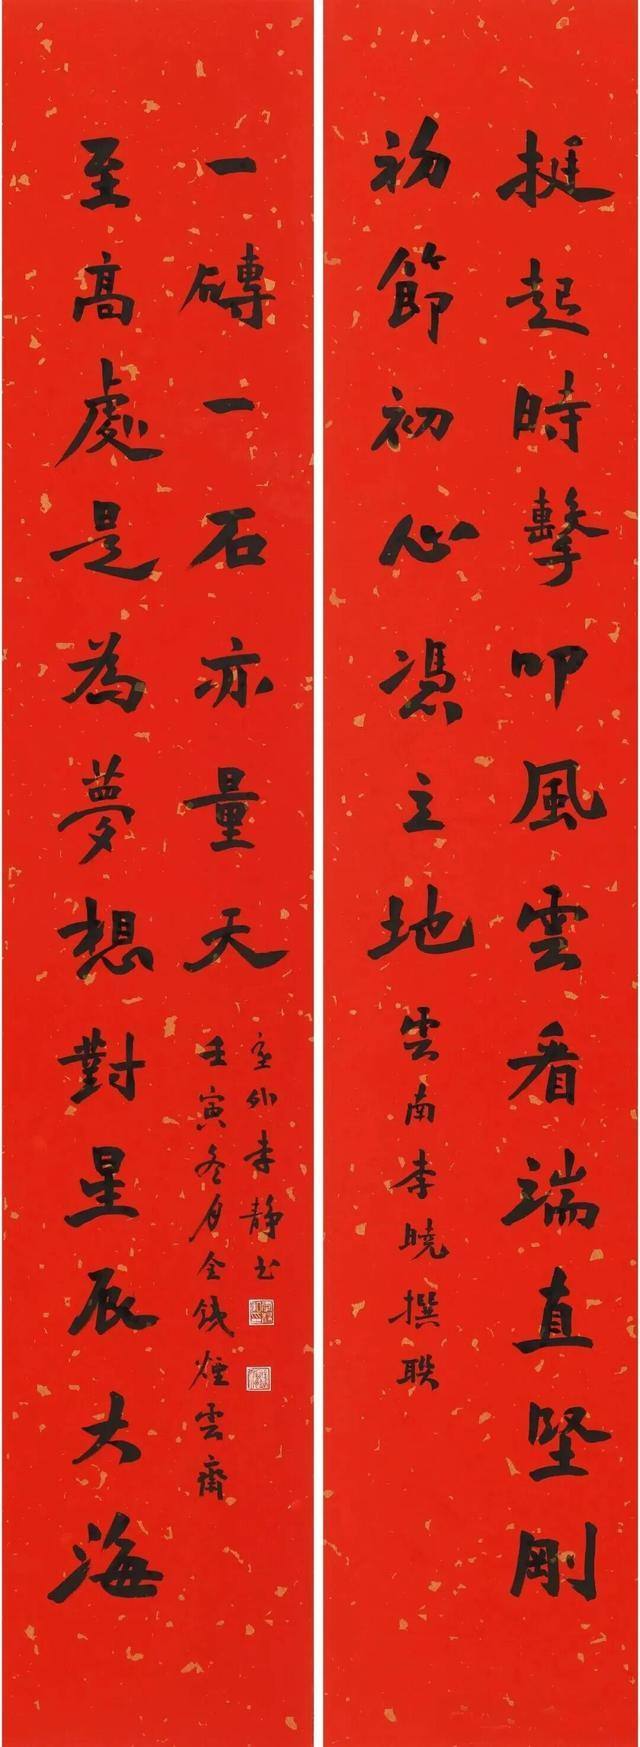 挺起時擊叩風雲看端直堅剛
初節初心憑立地
雲南李曉撰聯
至高處是為夢想對星辰大海
一磚一石亦量天
外李靜书
壬寅冬月煙雲齋